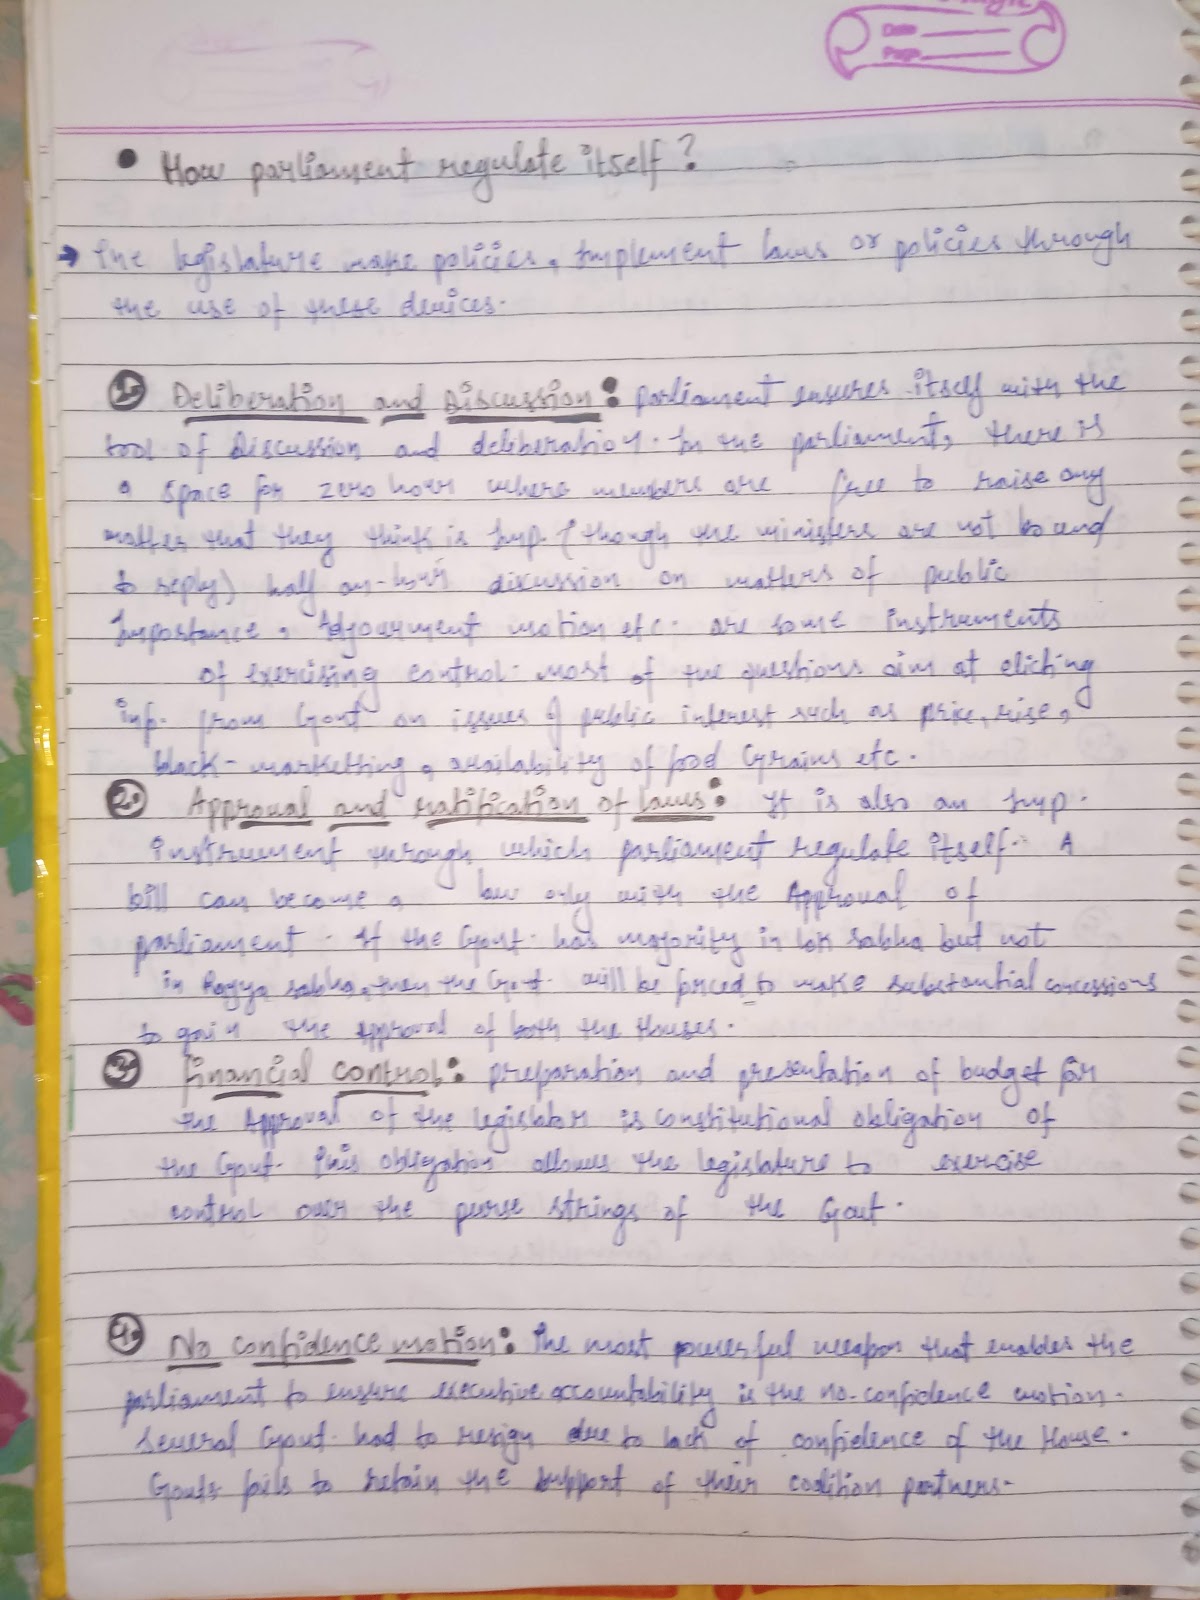 Date
Page
• How parliament regulate itself?
→ The legislature make policies, Implement laws or policies through
the use of these devices.
1. Deliberation and Discussion: parliament ensures itself with the
tool of Discussion and deliberation. In the parliament, there is
a space for zero hour where members are free to raise any
matter that they think is Imp. (though the ministers are not bound
to reply) half an-hour discussion on matters of public
Importance, Adjournment motion etc. are some instruments
of exercising control. most of the questions aim at eliciting
inf. from Govt on issues of public interest such as price, rise,
black-marketting, availability of food Grains etc.
2. Approval and ratification of laws: It is also an Imp.
instrument through which parliament regulate itself. A
bill can become a law only with the Approval of
parliament. If the Govt. has majority in lok sabha but not
in Rajya sabha, then the Govt. will be forced to make substantial concessions
to gain the approval of both the Houses.
3. Financial control: preparation and presentation of budget for
the Approval of the legislator is constitutional obligation of
the Govt. This obligation allows the legislature to exercise
control over the purse strings of the Govt.
4. No confidence motion: The most powerful weapon that enables the
parliament to ensure executive accountability is the no-confidence motion.
Several Govt. had to resign due to lack of confidence of the House.
Govts fails to retain the support of their coalition partners.